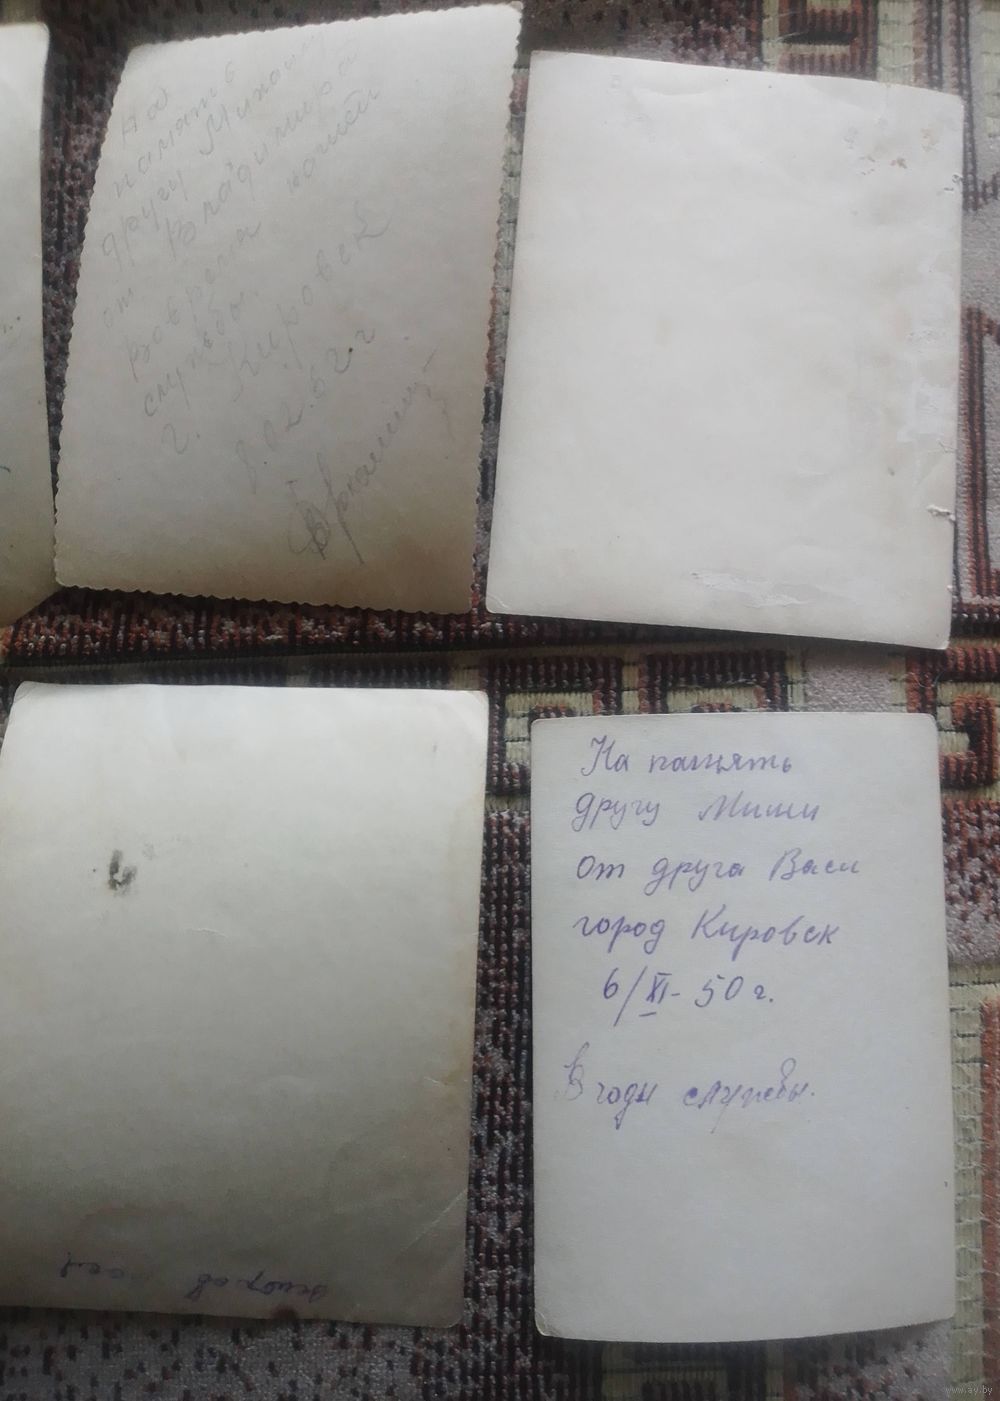 На
память
другу Михаилу
от Владимира
вовремя нашей
службы.
г. Кировск
8.02.62.г
На память
другу Миши
от друга Васи
город Кировск
6/XI-50 г.
В годы службы.
www.ay.by